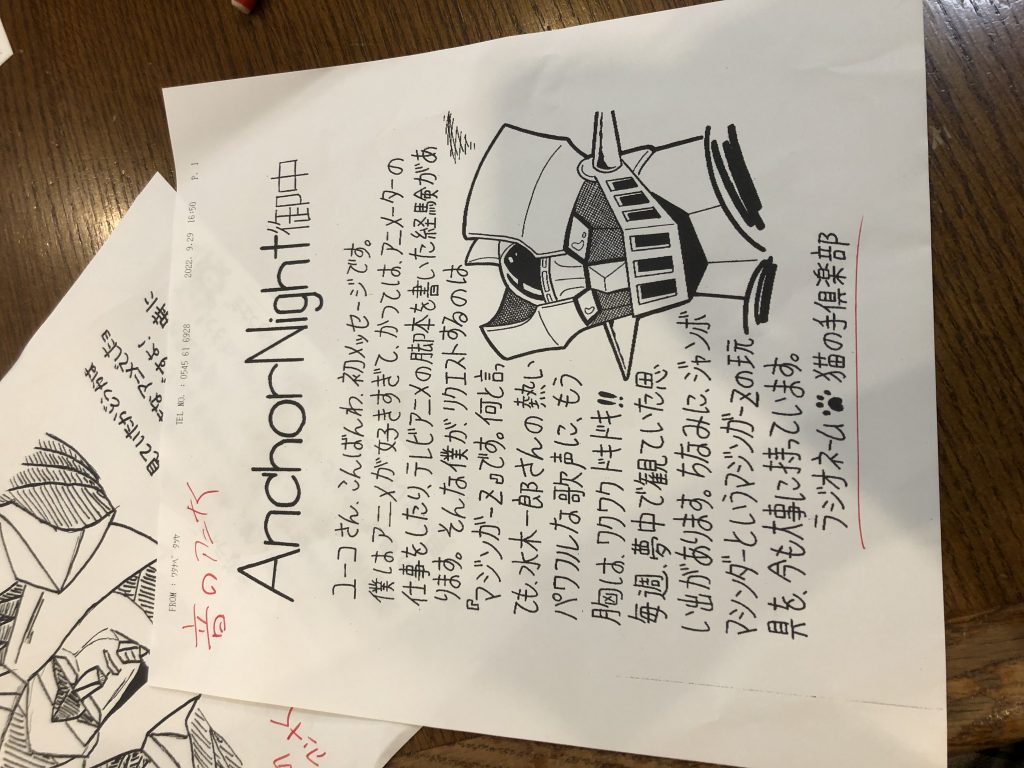 FROM : ワタナベ タツヤ
TEL NO. : 0545 61 6928
2022. 9.29 16:50 P. 1
音のアニメ
Anchor Night 御中
ユーコさん、こんばんわ、初メッセージです。
僕はアニメが好きすぎて、かつては、アニメーターの
仕事をしたり、テレビアニメの脚本を書いた経験があ
ります。そんな僕が、リクエストするのは
『マジンガーZ』です。何と言っ
ても、水木一郎さんの熱い
パワフルな歌声に、もう
胸は、ワクワクドキドキ!!
毎週、夢中で観ていた思
い出があります。ちなみに、ジャンボ
マシンダーというマジンガーZの玩
具を、今も大事に持っています。
ラジオネーム 猫の手倶楽部